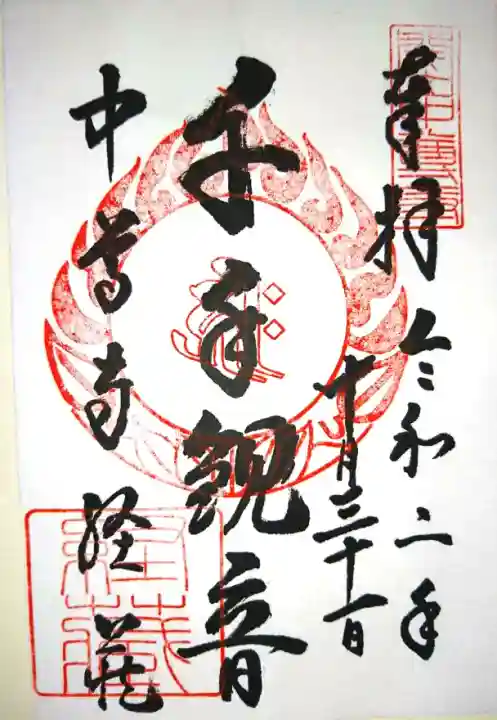 奉拝
令和二年
十月三十一日
千手観音
中尊寺経蔵
経蔵